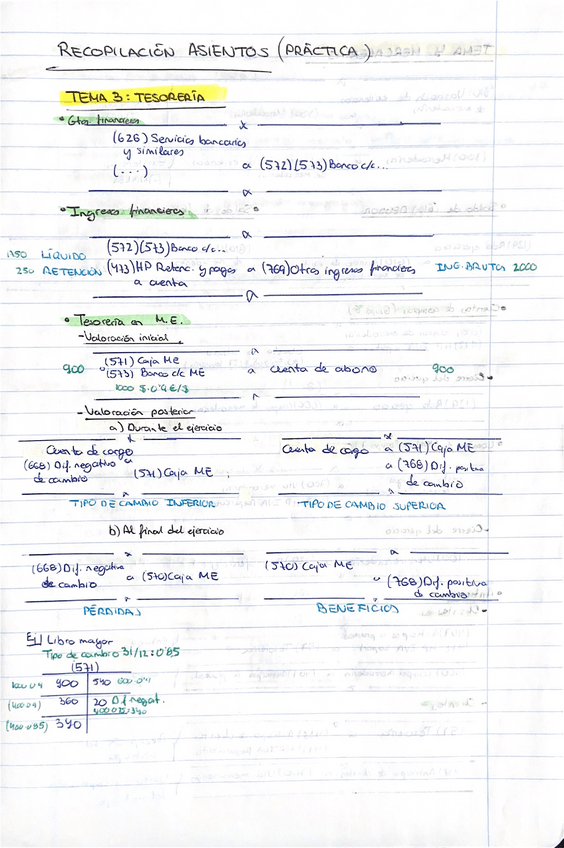 RECOPILACIÓN ASIENTOS (PRÁCTICA)
TEMA 3: TESORERÍA
• Gtos financieros x
(626) Servicios bancarios
y similares
(...) a (572)(573) Banco c/c...
• Ingresos financieros
(572)(573) Banco c/c...
LÍQUIDO
250 RETENCIÓN (473) HP Retenc. y pagos a (769) Otros ingresos financieros ING. BRUTO 2000
a cuenta
• Tesorería en M.E.
- Valoración inicial
(571) Caja ME
900 (573) Banco c/c ME a cuenta de abono 900
1000 $ · 0'9 €/$
- Valoración posterior
a) Durante el ejercicio
Cuenta de cargo
(668) Dif. negativa a
de cambio (571) Caja ME
TIPO DE CAMBIO INFERIOR
Cuenta de cargo a (571) Caja ME
a (768) Dif. positiva
de cambio
TIPO DE CAMBIO SUPERIOR
b) Al final del ejercicio
(668) Dif. negativa
de cambio a (570) Caja ME
PÉRDIDAS
(570) Caja ME
a (768) Dif. positiva
de cambio
BENEFICIOS
EJ Libro mayor
Tipo de cambio 31/12: 0'85
(571)
900 540 600·0'9
(400·0'9) 360 20 Dif negat.
400·0'85=340
(400·0'85) 340